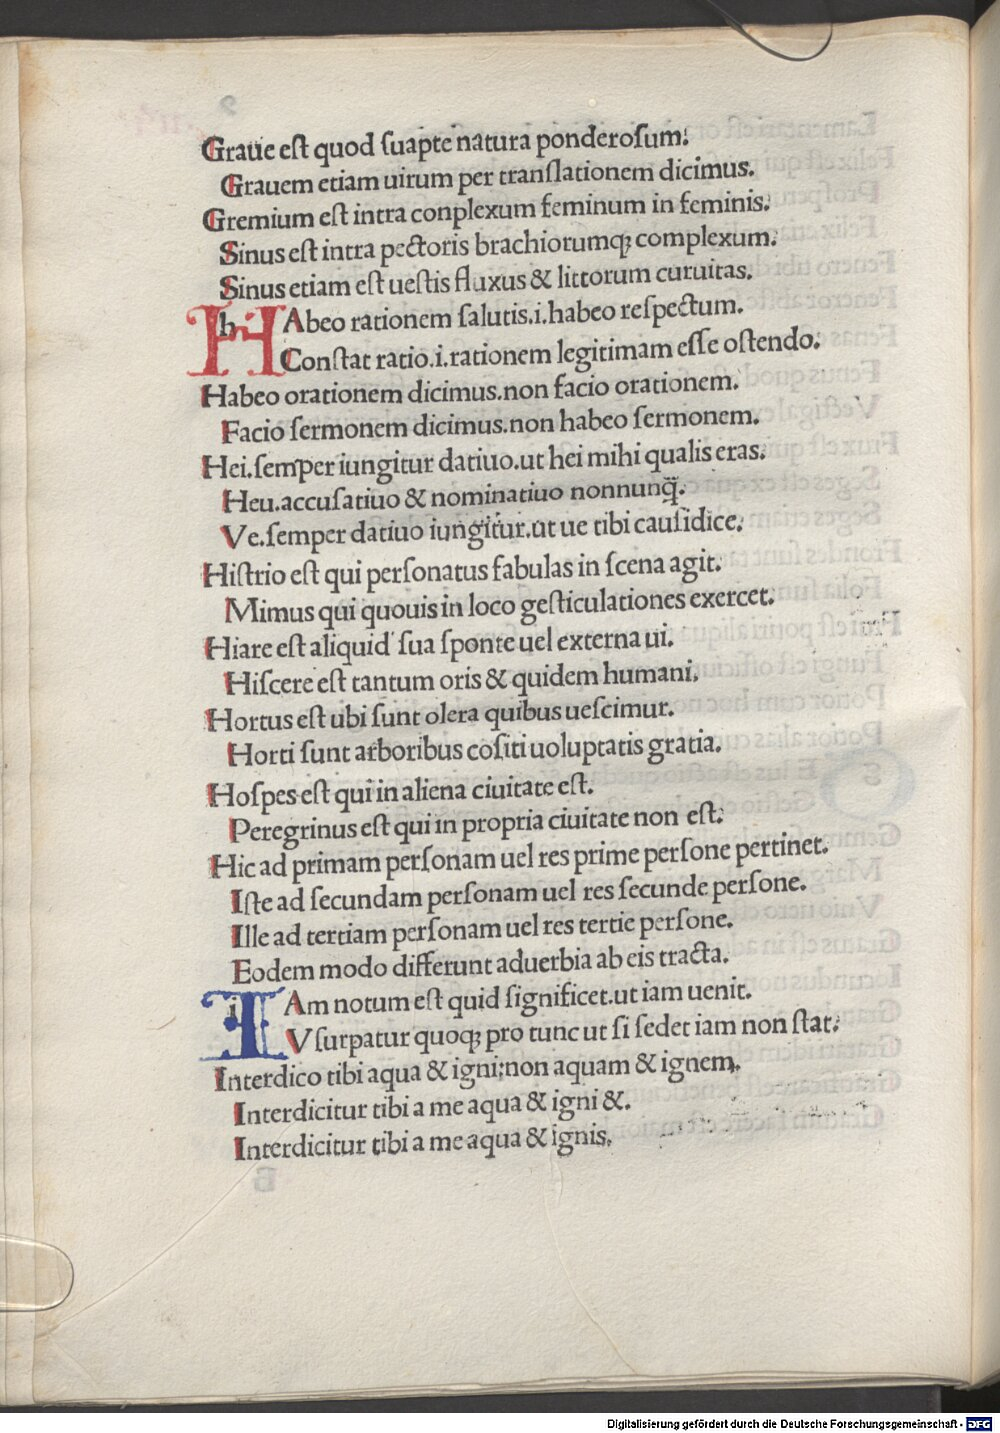 Graue eſt quod ſuapte natura ponderoſum.
Grauem etiam uirum per tranſlationem dicimus.
Gremium eſt intra conplexum feminum in feminis.
Sinus eſt intra pectoris brachiorumqꝫ complexum.
Sinus etiam eſt ueſtis fluxus & littorum curuitas.
HAbeo rationem ſalutis.i.habeo reſpectum.
Conſtat ratio.i.rationem legitimam eſſe oſtendo.
Habeo orationem dicimus.non facio orationem.
Facio ſermonem dicimus.non habeo ſermonem.
Hei.ſemper iungitur datiuo.ut hei mihi qualis eras.
Heu.accuſatiuo & nominatiuo nonnunq̃.
Ve.ſemper datiuo iungitur.ut ue tibi cauſidice.
Hiſtrio eſt qui perſonatus fabulas in ſcena agit.
Mimus qui quouis in loco geſticulationes exercet.
Hiare eſt aliquid ſua ſponte uel externa ui.
Hiſcere eſt tantum oris & quidem humani.
Hortus eſt ubi ſunt olera quibus ueſcimur.
Horti ſunt arboribus coſiti uoluptatis gratia.
Hoſpes eſt qui in aliena ciuitate eſt.
Peregrinus eſt qui in propria ciuitate non eſt.
Hic ad primam perſonam uel res prime perſone pertinet.
Iſte ad ſecundam perſonam uel res ſecunde perſone.
Ille ad tertiam perſonam uel res tertie perſone.
Eodem modo differunt aduerbia ab eis tracta.
IAm notum eſt quid ſignificet.ut iam uenit.
Vſurpatur quoqꝫ pro tunc ut ſi ſedet iam non ſtat.
Interdico tibi aqua & igni:non aquam & ignem.
Interdicitur tibi a me aqua & igni &.
Interdicitur tibi a me aqua & ignis.
Digitalisierung gefördert durch die Deutsche Forschungsgemeinschaft - DFG